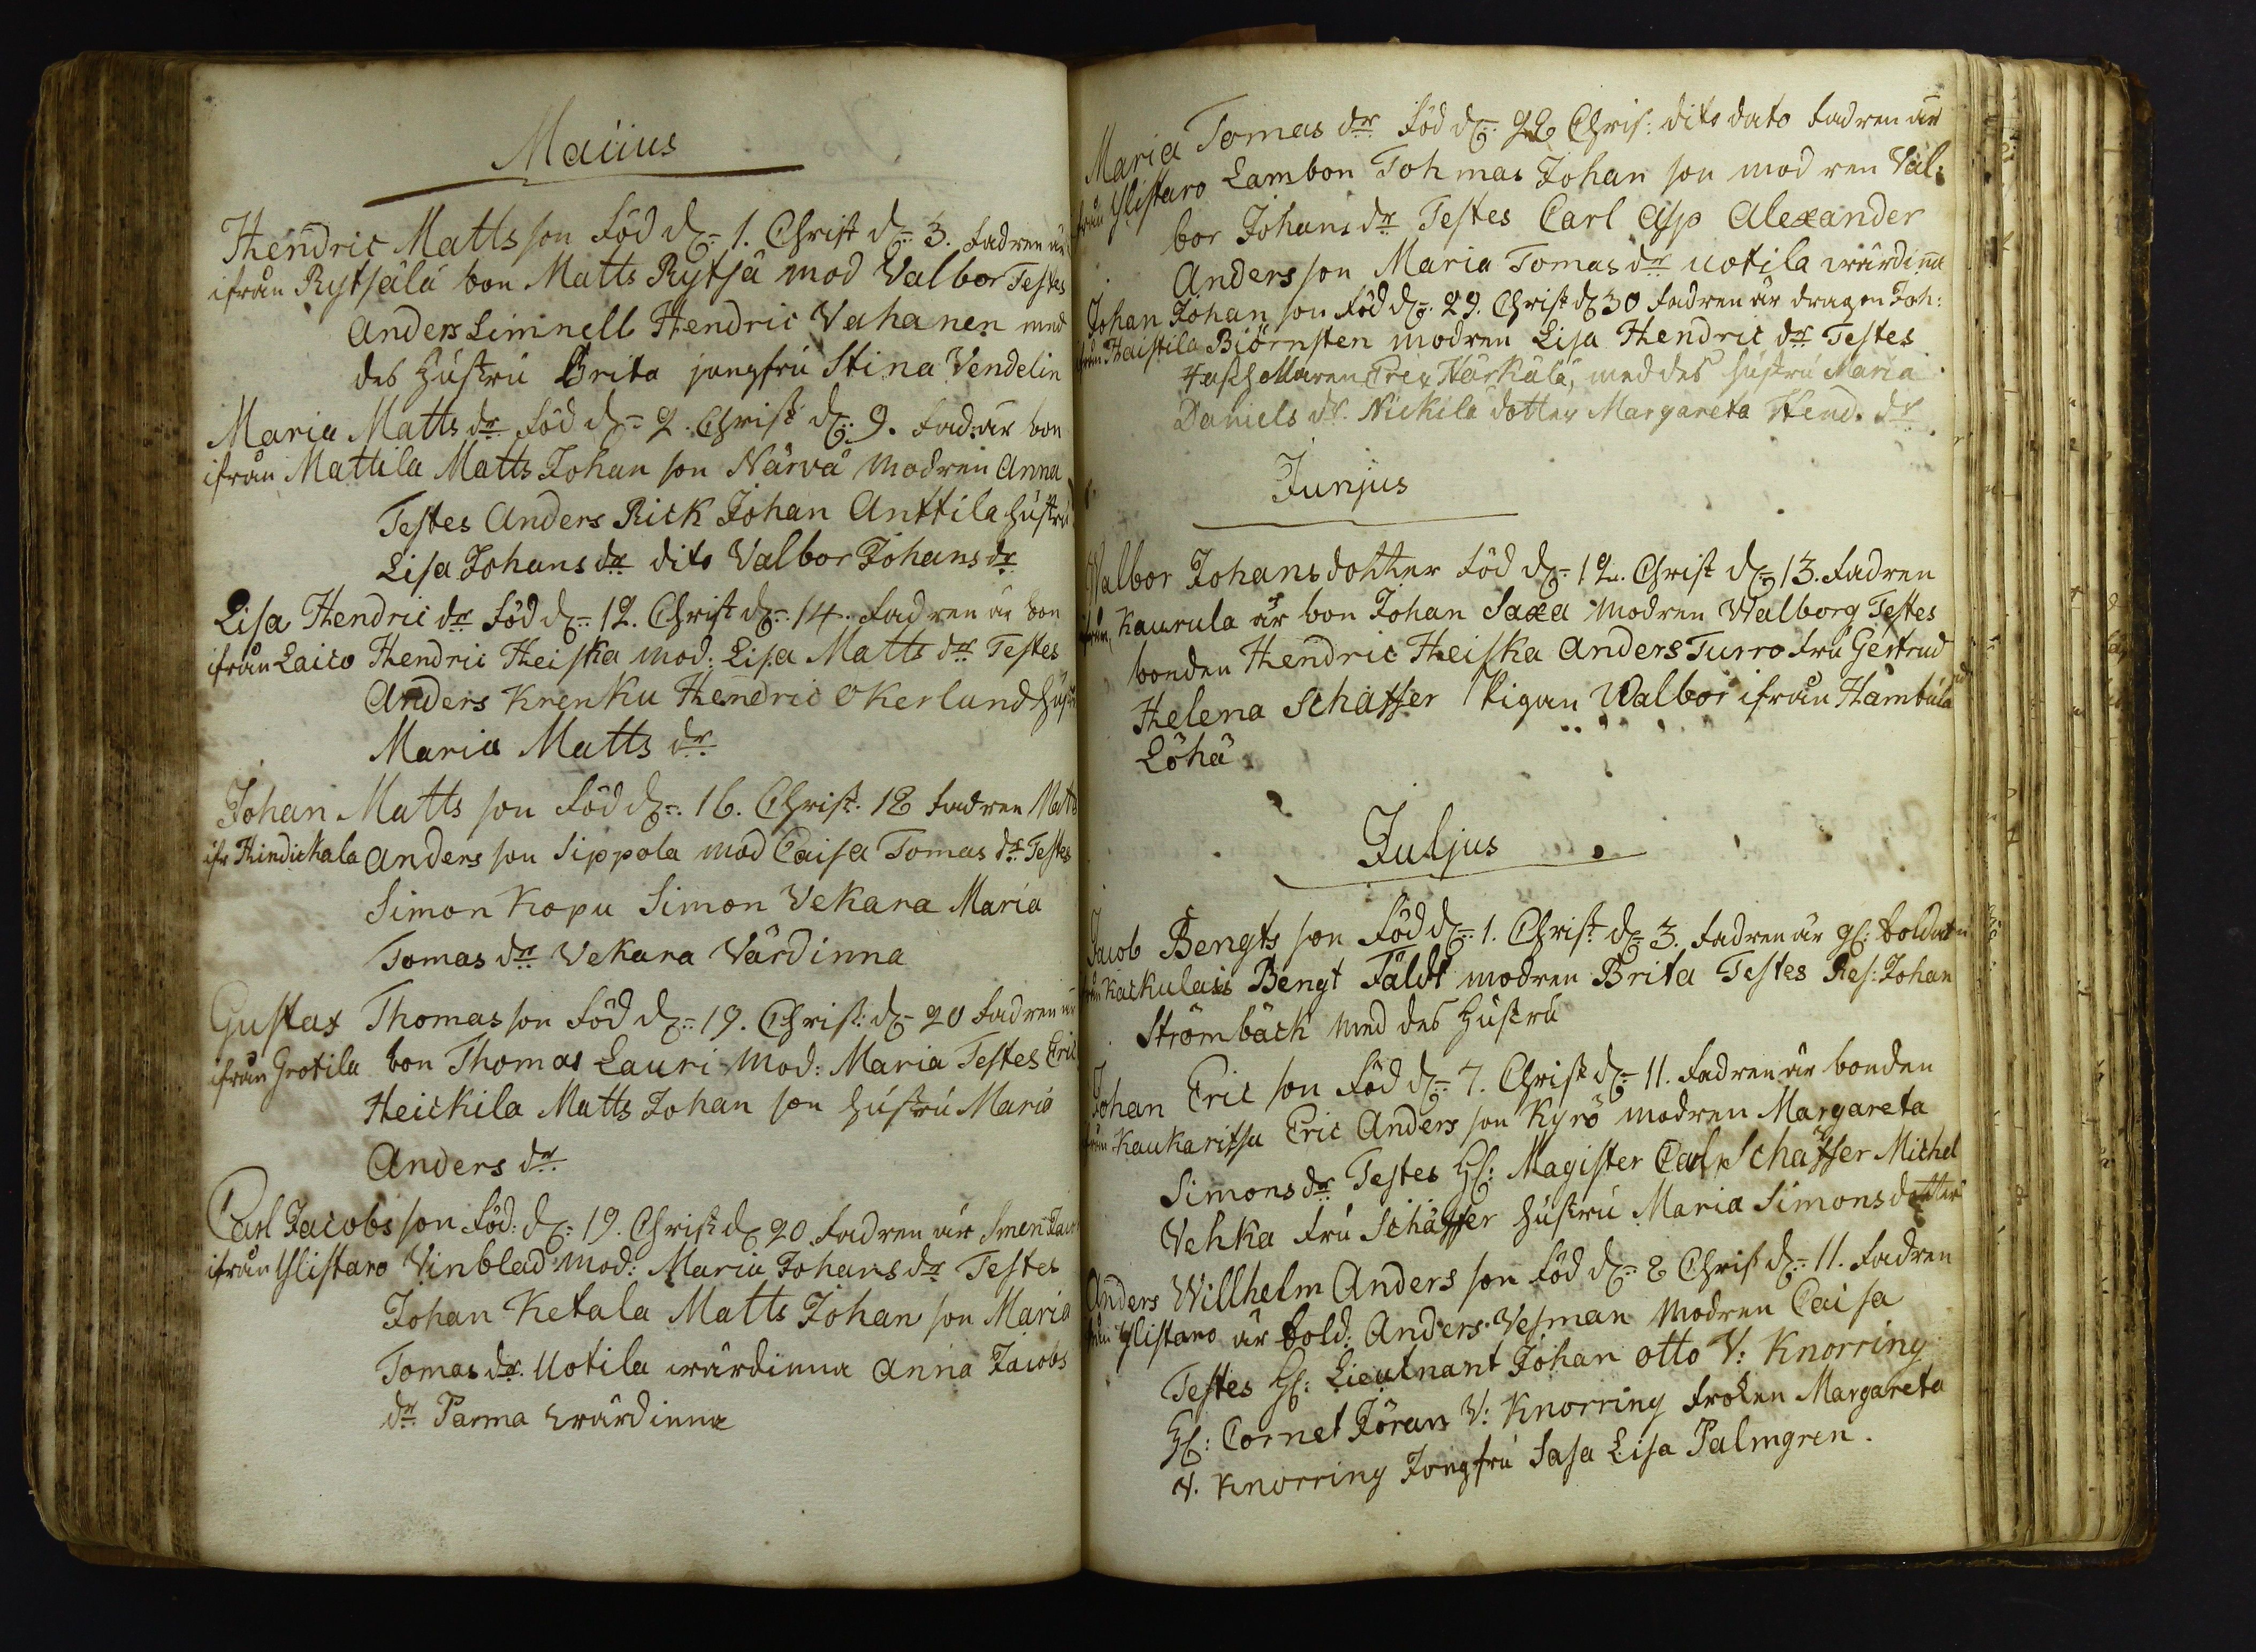 Maiius
Hendric Matts son Föd d: 1. Christ d: 3. Fadren är
ifrån Rytsälä bon Matts Rytsä mod Valbor Testes
Anders Limnell Hendric Vahanen med
des Hustru Brita jungfru Stina Vendelin
Maria Matts dr Föd d: 2. Christ d: 9. Fad: är bon
ifrån Mattila Matts Johan son Närvä modren Anna
Testes Anders Rick Johan Anttila hustru
Lisa Johans dr dito Valbor Johans dr
Lisa Hendric dr Föd d: 12. Christ d: 14. Fadren är bon
ifrån Laico Hendric Heiska mod: Lisa Matts dr Testes
Anders Krenku Hendric Okerlund hust
Maria Matts dr
Johan Matts son Föd d: 16. Christ. 18 Fadren Matts
ifr Hindickala Anders son Sippola mod Caisa Tomas dr Testes
Simon Kopu Simon Vekara Maria
Tomas dr Vekara Värdinna
Gustav Thomas son Föd d: 19. Christ: d: 20 Fadren är
ifrån Grotila bon Thomas Lauri mod: Maria Testes Eric
Heickila Matts Johan son hustru Maria
Anders dr
Carl Jacobs son Föd: d: 19. Christ d: 20 Fadren är Smen Jacob
ifrån Ylistaro Vinblad mod: Maria Johans dr Testes
Johan Ketala Matts Johan son Maria
Tomas dr. Uotila wärdinna Anna Jacobs
dr Parma wärdinna
Maria Tomas dr Föd d: 28 Chris: dito dato Fadren är
från Ylistaro Lambon Tohmas Johan son modren Val:
bor Johans dr Testes Carl Asp Alexander
Anders son Maria Tomas dr uotila wärdinna
Johan Johan son Föd d: 29. Christ d: 30 Fadren är dragon Joh:
ifrån Haistila Biörnsten modren Lisa Hendric dr Testes
Eric Härkälä, med des hustru Maria
Daniels dr. Nickilä dotter Margareta Hend. dr
Junjus
Walbor Johansdotter Föd d: 12. Christ d: 13. Fadren
ifrån Kaurula är bon Johan Saxa modren Walborg Testes
bonden Hendric Heiska Anders Turro Fru Gertrud
Helena Schäffer Pigan Walbor ifrån Hambula
Löhä
Juljus
Jacob Bengts son Föd d: 1. Christ d: 3. Fadren är gl: Soldaten
från Kackulais Bengt Fäldt modren Brita Testes Res: Johan
Strömbäck med des Hustru
Johan Eric son Föd d: 7. Christ d: 11. Fadren är bonden
från Kaukaritsa Eric Anders son Kyrö modren Margareta
Simons dr Testes H: Magister Carl Schäffer Michel
Vehka Fru Schäffer hustru Maria Simonsdotter
Anders Willhelm Anders son Föd d: 8 Chris d: 11. Fadren
från Ylistaro är Sold: Anders Vesman modren Caisa
Testes H: Lieutnant Johan Otto V: Knorring
H: Cornet Jöran V: Knorring Fröken Margareta
V. Knorring Jongfru Sasa Lisa Palmgren.